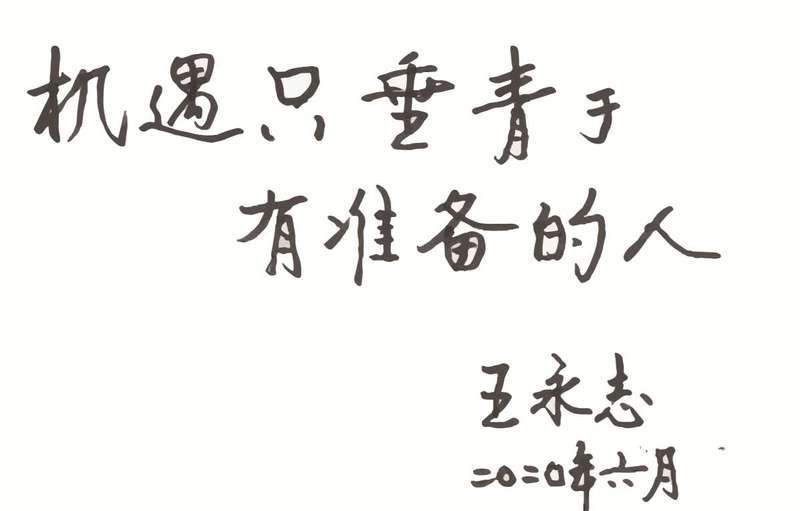 机遇只垂青于
有准备的人
王永志
二〇二〇年六月